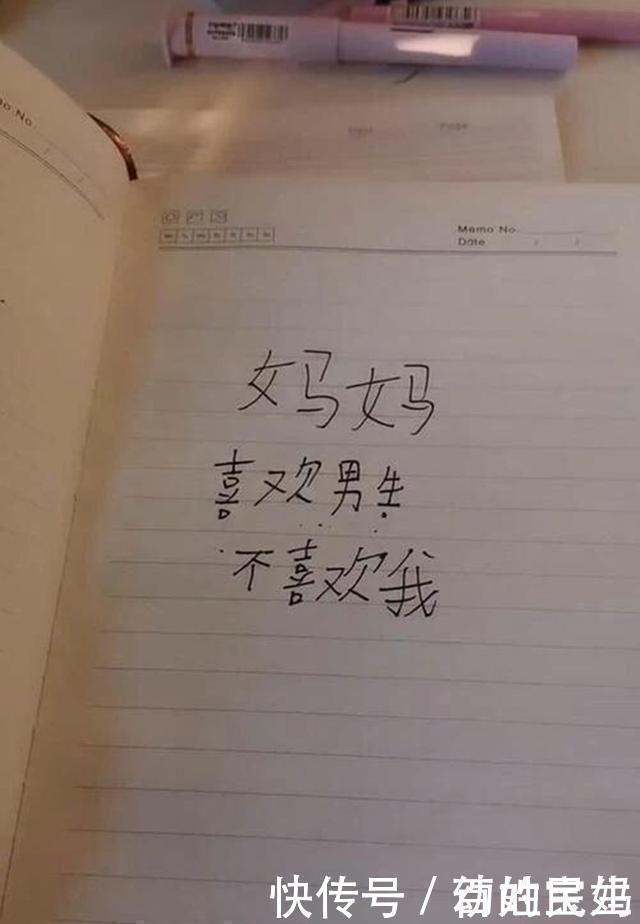 Memo No.
Date / /
妈妈
喜欢男生
不喜欢我
快传号/